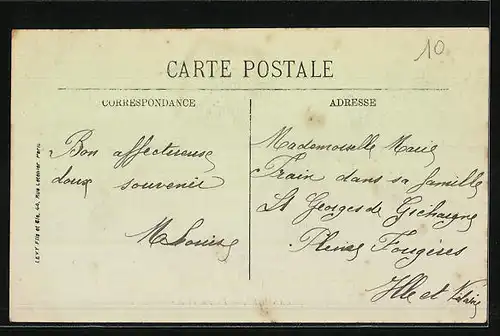 10
CARTE POSTALE
CORRESPONDANCE
ADRESSE
Bon affectueux
doux souvenir
M Louise
Mademoiselle Marie
Train dans sa famille
St Georges de
Pleine Fougères
Ille et Vilaine
LEVY Fils et Cie, 44, Rue Letellier Paris